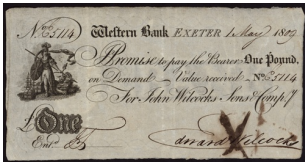 No C5114 Western Bank EXETER 1 May 1809
I Promise to pay the Bearer One Pound
on Demand Value received No C5114
For John Wilcocks Sons & Compy
One
Entd
Edward Wilcock